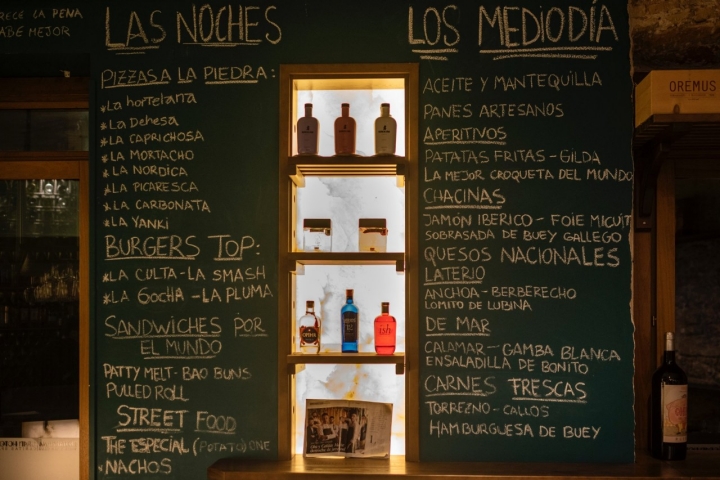 RECE LA PENA
ABE MEJOR
LAS NOCHES
PIZZAS A LA PIEDRA:
*La hortelana
*La Dehesa
*LA CAPRICHOSA
*LA MORTACHO
*LA NORDICA
*LA PICARESCA
*LA CARBONATA
*LA YANKI
BURGERS TOP:
*LA CULTA-LA SMASH
*LA GOCHA-LA PLUMA
SANDWICHES POR
EL MUNDO
PATTY MELT-BAO BUNS
PULLED ROLL
STREET FOOD
THE ESPECIAL (POTATO) ONE
*NACHOS
LOS MEDIODÍA
ACEITE Y MANTEQUILLA
PANES ARTESANOS
APERITIVOS
PATATAS FRITAS-GILDA
LA MEJOR CROQUETA DEL MUNDO
CHACINAS
JAMÓN IBERICO-FOIE MICUIT
SOBRASADA DE BUEY GALLEGO
QUESOS NACIONALES
LATERIO
ANCHOA-BERBERECHO
LOMITO DE LUBINA
DE MAR
CALAMAR-GAMBA BLANCA
ENSALADILLA DE BONITO
CARNES FRESCAS
TORREZNO-CALLOS
HAMBURGUESA DE BUEY
OREMUS